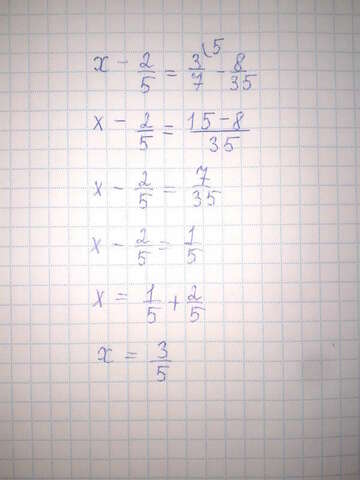 x - 2/5 = 3/7 \5 - 8/35
x - 2/5 = 15-8/35
x - 2/5 = 7/35
x - 2/5 = 1/5
x = 1/5 + 2/5
x = 3/5